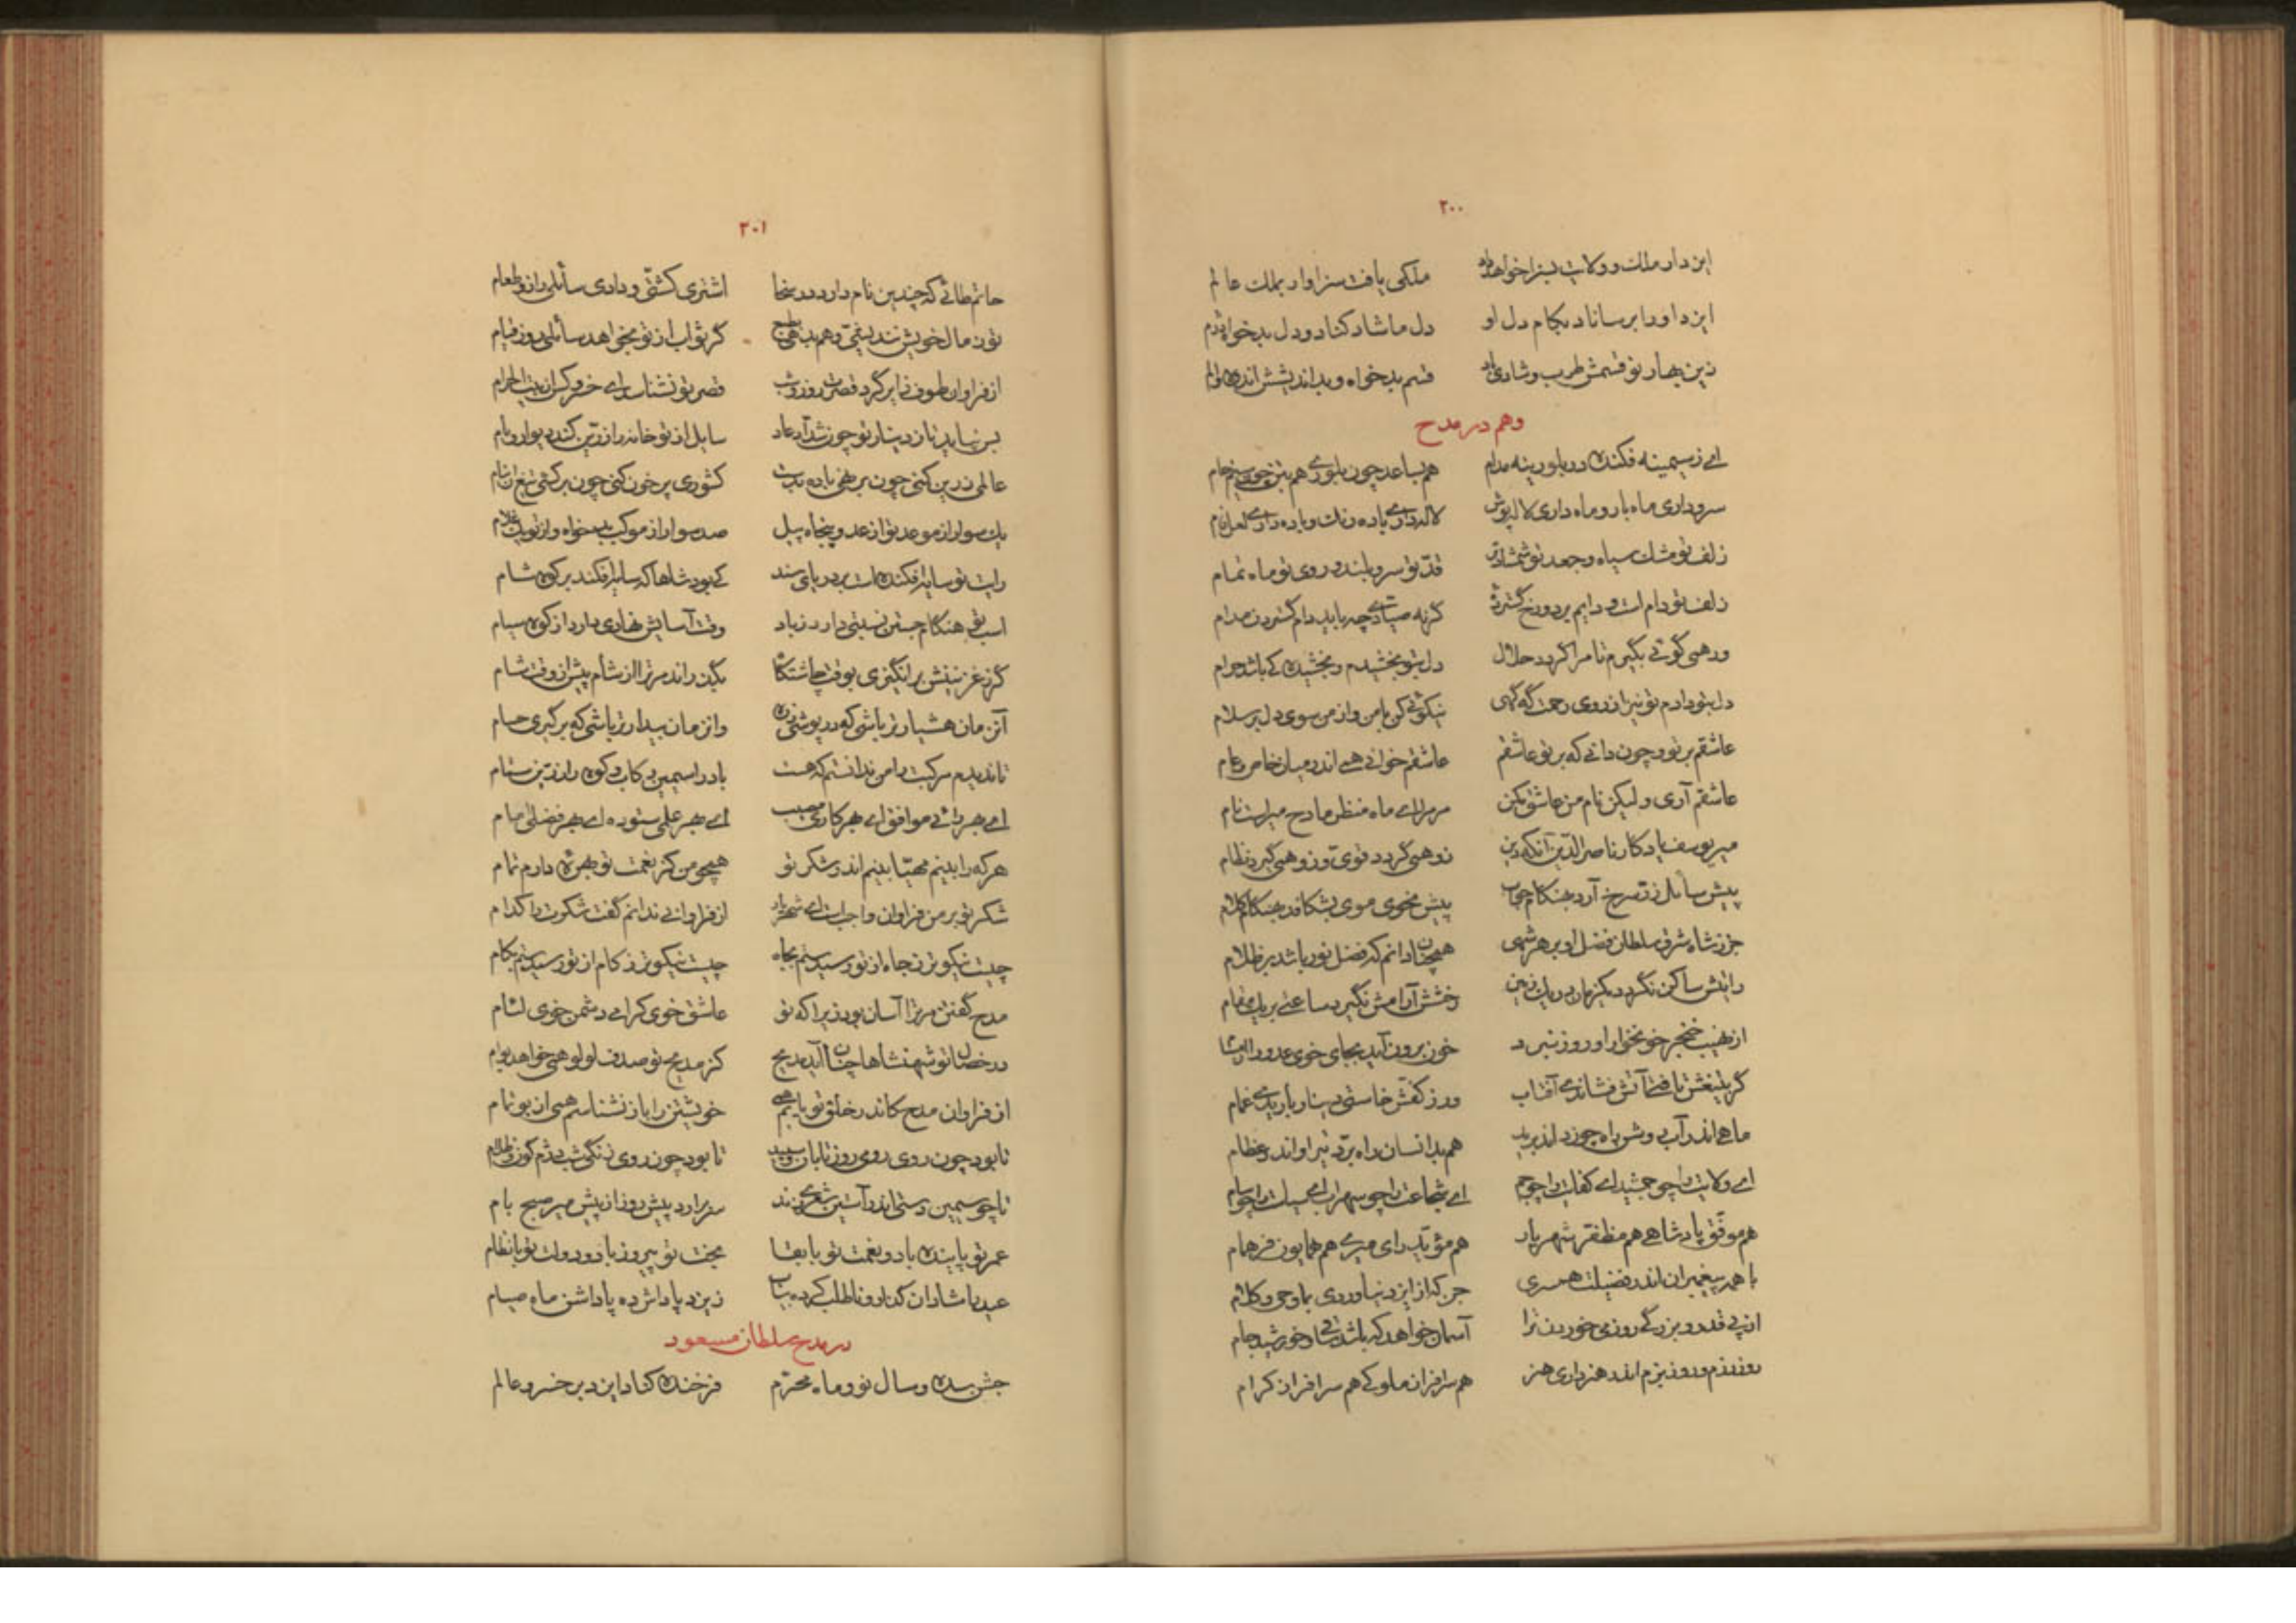 ۲۰۰
ایزد او را ملک و ولایت بسزا خواهد داد ملکی یافت سزاوار بملک عالم
ایزد او را برساناد بکام دل او دل ما شاد کناد و دل بدخواه دژم
زین بهار نو قسمش طرب و شادی باد قسم بدخواه و بداندیشش اندوه و الم
وهم در مدح
ای ز سیمینه فکنده در بلورینه مدام هم بساعد چون بلوری هم بتن چون سیم خام
سرو داری ماه بار و ماه داری لاله پوش لاله داری باده رنگ و باده داری لعل فام
زلف تو مشک سیاه و جعد تو شمشاد تر قدّ تو سرو بلند و روی تو ماه تمام
زلف تو دام است و دایم بر دو رخ گسترده گر نه صیادی چه باید دام گستردن مدام
ور همی گوئی بگیرم تا مرا گردد حلال دل بتو بخشیدم و بخشیده کی باشد حرام
دل بتو دادم تو نیز از روی رحمت گه گهی نیکوئی کن با من و از من سوی دل بر سلام
عاشقم بر تو و چون دانی که بر تو عاشقم عاشقم خوانی همی اندر میان خاص و عام
عاشقم آری و لیکن نام من عاشق مکن مر مرا ای ماه منظر مادح میر است نام
میر یوسف یادگار ناصر الدین آنکه دین زو همی گردد قوی و زو همی گیرد نظام
پیش سائل زرّ سرخ آرد بهنگام جواب پیش نحوی موی بشکافد بهنگام کلام
جز ز شاه شرق سلطان فضل او بر هر شهی همچنان دانم که فضل نور باشد بر ظلام
رایتش ساکن نگردد یکزمان در یک زمین رخشش آرامش نگیرد ساعتی بر یک مقام
از نهیب خنجر خونخوار او روز نبرد خون برون آید بجای خوی عدو را از مشام
گر بتیغش تافتی آتش فشاندی آفتاب ور ز کفّش خاستی دینار باریدی غمام
ماهی اندر آب روشن راه چون داند برید هم بدانسان راه برّد تیر او اندر عظام
ای ولایت را چو جمشید ای کفایت را چو جم ای شجاعت را چو سهراب ای بسیاست را چو سام
هم موفّق پادشاهی هم مظفّر شهریار هم مؤیّد رای میری هم همایون فرّ همام
با همه پیغمبران اندر فضیلت همسری جز که از ایزد نیاوردی بما وحی و کلام
از پی قدر و بزرگی روز می خوردن ترا آسمان خواهد که باشد ساقی و خورشید جام
روز رزم و روز بزم اندر هنر داری هنر هم سرافراز ملوکی هم سرافراز کرام
۲۰۱
حاتم طائی که چندین نام دارد در سخا اشتری کشتی و دادی سائلی را زو طعام
تو ز مال خویش نندیشی و هم بدهی گر ثواب از تو بخواهد سائلی روز قیام
از فراوان طوف زایر گرد قصرت روز و شب قصر تو نشناسد ای خسرو کس از بیت الحرام
بس نیاید تا ز دینار تو چون شدّاد عاد سایل از تو خانه را زرّین کند دیوار و بام
عالمی زرین کنی چون برنهی باده بدست کشوری پر خون کنی چون برکشی تیغ از نیام
یک سوار از موعد تو از عدو پنجاه پیل صد سوار از موکب بدخواه و از تو یک غلام
رایت تو سایه افکنده است بر دریای سند کی بود شاها که سایه افکند بر کوه شام
اسب تو هنگام جستن نسبتی دارد ز باد وقت آسایش نهادی دارد از کوه سیام
گر ز غزنینش برانگیزی بوقت چاشتگاه بگذراند مر ترا از شأم پیش از وقت شام
آنزمان هشیارتر باشی که در پوشی زره وانزمان بیدارتر باشی که برگیری حسام
تا ندیدم مرکبت را من ندانستم که هست باد را سیمین رکاب و کوه را زرین ستام
ای بهر رائی موافق ای بهر کاری مصیب ای بهر علمی ستوده ای بهر فضلی تمام
هر که را بینم مهیّا بینم اندر شکر تو همچو من کز نعمت تو بهره دارم تمام
شکر تو بر من فراوان واجب است ای شهریار از فراوانی ندانم گفت شکرت را کدام
چیست نیکوتر ز جاه از تو رسیدستم بجاه چیست نیکوتر ز کام از تو رسیدستم بکام
مدح گفتن مر ترا آسان بود زیرا که تو عاشق خوی کرامی دشمن خوی لئام
در خصال تو شهنشاها چنان آید مدیح کز مدیح تو صدف لولو همی خواهد بوام
از فراوان مدح کاندر خلق تو یابم همی خویشتن را باز نشناسم همی از بو تمام
تا بود چون روی رومی روز تابان سپید تا بود چون روی زنگی شب دژم گون و ظلام
تا چو سیمین دستی اندر آستین شعر زند سر برارد پیش روز از پیش میر صبح بام
عمر تو پاینده باد و نعمت تو با بقا بخت تو پیروز باد و دولت تو با نظام
عید با شادان کناد و طلب کرده بیاب ز ایزد پاداش ده پاداشن ماه صیام
در مدح سلطان مسعود
جشن سده و سال نو و ماه محرّم فرخنده کناد ایزد بر خسرو عالم